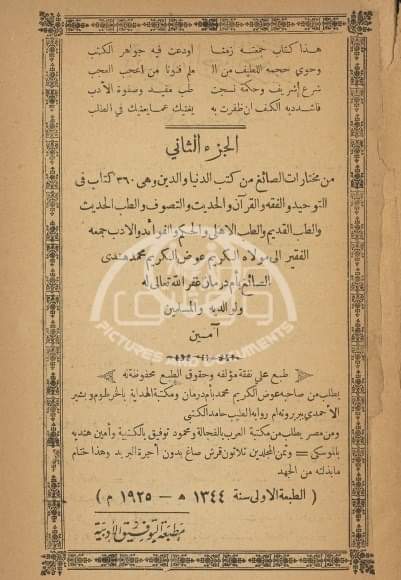 هذا كتاب جمعته زمنا   اودعت فيه جواهر الكتب
وحوى حجمه اللطيف من ال   علم فنونا من اعجب العجب
شرع شريف وحكمة نجت   طب مفيد وصفوة الأدب
فاشدد به الكف ان ظفرت به   يغنيك عما يعنيك في الطلب
الجزء الثاني
من مختارات الصائغ من كتب الدنيا والدين وهى ٣٦٠ كتاب فى
التوحيد والفقه والقرآن والحديث والتصوف والطب الحديث
والطب القديم والطب الاهلى والحكم والفوائد والادب جمعه
الفقير الى مولاه الكريم عوض الكريم محمد هندى
الصائغ بام درمان غفر الله تعالى له
ولوالديه والمسلمين
آمين
PICTURES DOCUMENTS
طبع على نفقة مؤلفه وحقوق الطبع محفوظة له
يطلب من صاحبه عوض الكريم محمد بأم درمان ومكتبة الهداية بالخرطوم وبشير
الأحمدى ببربر وبه ام روابه الطيب حامد الكتبى
ومن مصر يطلب من مكتبة العرب بالفجالة ومحمود توفيق بالكتبية وأمين هنديه
بالموسكى = وثمن المجلدين ثلاثون قرش صاغ بدون أجرة البريد وهذا ختام
ما بذلته من الجهد
( الطبعة الاولى سنة ١٣٤٤ ھ — ١٩٢٥ م )
مطبعة التوفيق الأدبية